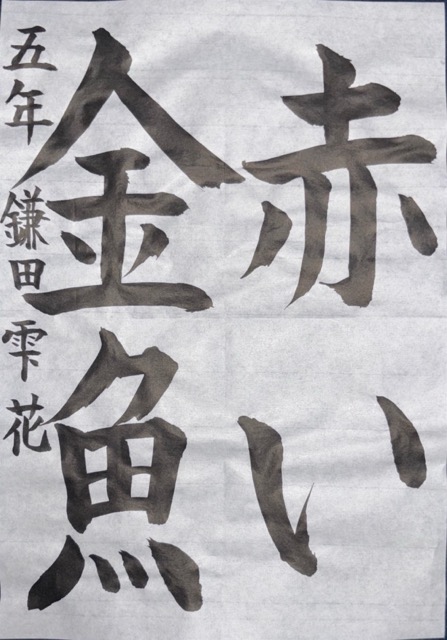 赤い
金魚
五年 鎌田 雫花